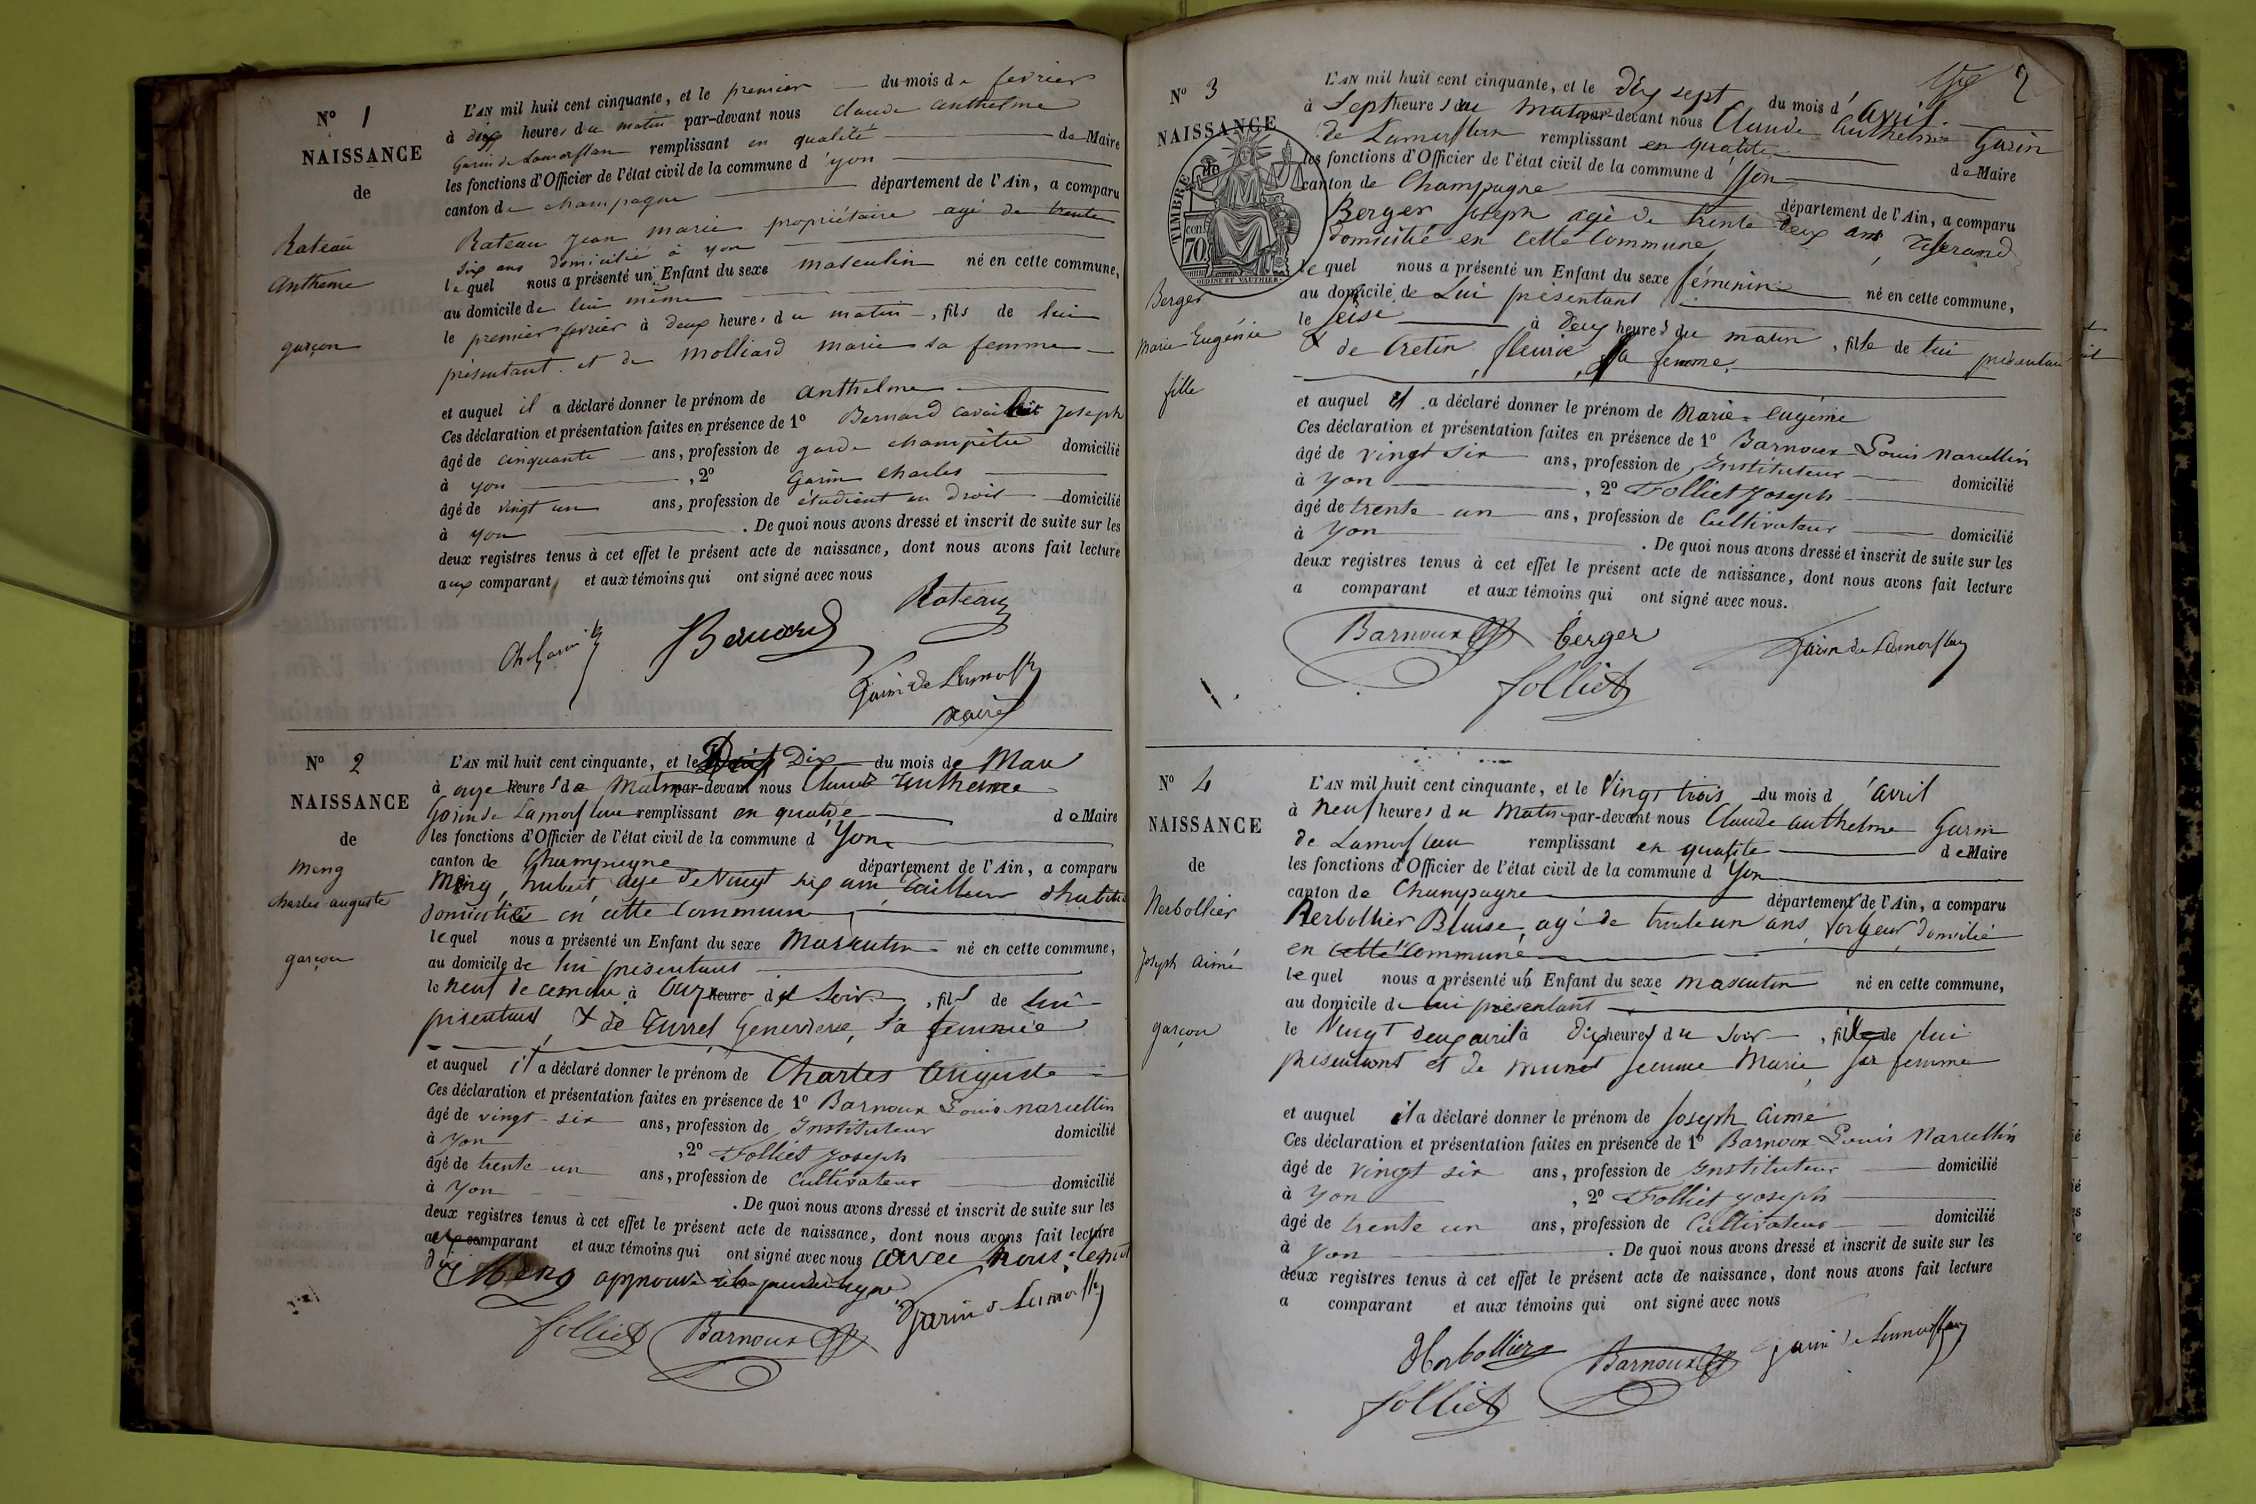 N° 1
NAISSANCE
de
Rateau
Anthelme
garçon
L'AN mil huit cent cinquante, et le premier du mois de fevrier
à dix heures du matin par-devant nous Claude anthelme
Garin de Lamorflan remplissant en qualité de Maire
les fonctions d'Officier de l'état civil de la commune d'yon
canton de champagne département de l'Ain, a comparu
Rateau jean marie propriétaire agé de trente
six ans domicilié à yon
lequel nous a présenté un Enfant du sexe masculin né en cette commune,
au domicile de lui même
le premier fevrier à deux heures du matin, fils de lui
présentant et de molliard marie sa femme
et auquel il a déclaré donner le prénom de anthelme
Ces déclaration et présentation faites en présence de 1° Bernard Joseph
âgé de cinquante ans, profession de garde champêtre domicilié
à yon, 2° Garin charles
âgé de vingt un ans, profession de étudient en droit domicilié
à yon. De quoi nous avons dressé et inscrit de suite sur les
deux registres tenus à cet effet le présent acte de naissance, dont nous avons fait lecture
aux comparant et aux témoins qui ont signé avec nous
Rateau
Ch Garin Bernard
Garin de Lamorflan
maire
N° 2
NAISSANCE
de
Meng
charles auguste
garçon
L'AN mil huit cent cinquante, et le Dix du mois de Mars
à onze heures du Matin par-devant nous Claude Anthelme
Garin de Lamorflan remplissant en qualité de Maire
les fonctions d'Officier de l'état civil de la commune d'Yon
canton de Champagne département de l'Ain, a comparu
Meng, hubert age de Vingt six ans Tailleur d'habits
domicilié en cette Commune
lequel nous a présenté un Enfant du sexe Masculin né en cette commune,
au domicile de lui présentant
le neuf de ce mois à onze heure du Soir, fils de lui
présentant & de Turrel Genevieve, sa femme
et auquel il a déclaré donner le prénom de Charles Auguste
Ces déclaration et présentation faites en présence de 1° Barnoux Louis marcellin
âgé de vingt-six ans, profession de Instituteur domicilié
à Yon, 2° Folliet Joseph
âgé de trente-un ans, profession de Cultivateur domicilié
à Yon. De quoi nous avons dressé et inscrit de suite sur les
deux registres tenus à cet effet le présent acte de naissance, dont nous avons fait lecture
aux comparant et aux témoins qui ont signé avec nous avec nous
Meng approuvé
folliet Barnoux Garin de Lamorflan
2
N° 3
NAISSANCE
TIMBRE
70
OUDINE ET VAUTHIER
Berger
Marie Eugénie
fille
L'AN mil huit cent cinquante, et le dix sept du mois d'Avril
à Sept heures du Matin par-devant nous Claude Anthelme Garin
de Lamorflan remplissant en qualité de Maire
les fonctions d'Officier de l'état civil de la commune d'Yon
canton de Champagne département de l'Ain, a comparu
Berger Joseph agé de trente deux ans, tisserand
domicilié en cette Commune
lequel nous a présenté un Enfant du sexe féminin né en cette commune,
au domicile de Lui présentant
le seise à deux heures du matin, fille de lui présentant
& de Cretin, fleurie, sa femme
et auquel il a déclaré donner le prénom de Marie-Eugénie
Ces déclaration et présentation faites en présence de 1° Barnoux Louis Marcellin
âgé de vingt six ans, profession de Instituteur domicilié
à Yon, 2° Folliet Joseph
âgé de trente-un ans, profession de Cultivateur domicilié
à Yon. De quoi nous avons dressé et inscrit de suite sur les
deux registres tenus à cet effet le présent acte de naissance, dont nous avons fait lecture
a comparant et aux témoins qui ont signé avec nous.
Barnoux berger Garin de Lamorflan
folliet
N° 4
NAISSANCE
de
Herbollier
Joseph Aimé
garçon
L'AN mil huit cent cinquante, et le Vingt trois du mois d'avril
à neuf heures du Matin par-devant nous Claude Anthelme Garin
de Lamorflan remplissant en qualité de Maire
les fonctions d'Officier de l'état civil de la commune d'Yon
canton de Champagne département de l'Ain, a comparu
Herbollier Blaise, agé de trente un ans, forgeur, domicilié
en cette commune
lequel nous a présenté un Enfant du sexe masculin né en cette commune,
au domicile de lui présentant
le Vingt deux avril à dix heures du Soir, fils de lui
présentant et de munet jeanne Marie, sa femme
et auquel il a déclaré donner le prénom de Joseph aimé
Ces déclaration et présentation faites en présence de 1° Barnoux Louis Marcellin
âgé de vingt six ans, profession de Instituteur domicilié
à Yon, 2° Folliet Joseph
âgé de trente un ans, profession de Cultivateur domicilié
à Yon. De quoi nous avons dressé et inscrit de suite sur les
deux registres tenus à cet effet le présent acte de naissance, dont nous avons fait lecture
a comparant et aux témoins qui ont signé avec nous
Herbollier Barnoux garin de Lamorflan
folliet